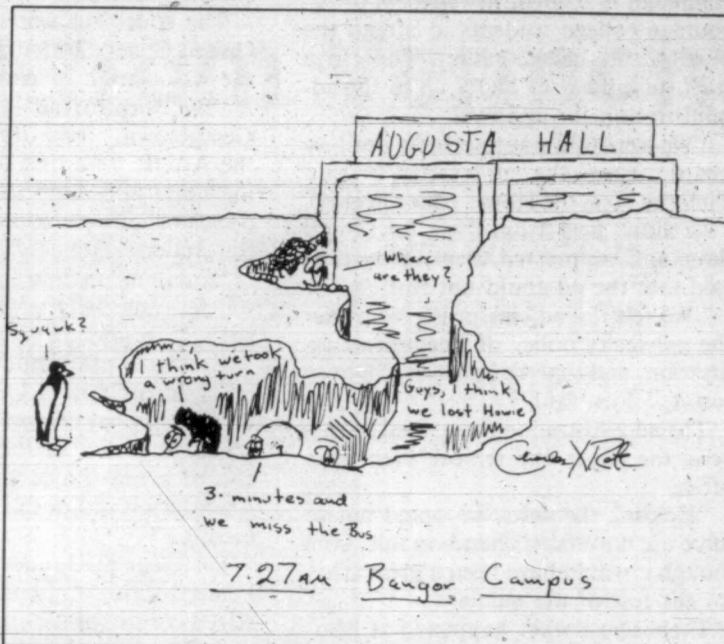 AUGUSTA HALL
Where
are they?
Squawk?
I think we took
a wrong turn
Guys, I think
we lost Howie
3 minutes and
we miss the Bus
7:27 AM Bangor Campus